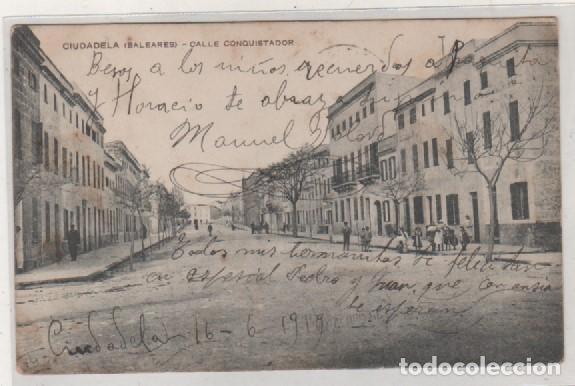 CIUDADELA (BALEARES) - CALLE CONQUISTADOR
Besos a los niños recuerdos a
y Horacio te abraza tu
Manuel
Todos mis hermanitos te felicitan
en especial Pedro y Juan, que con ansia
te esperan
Ciudadela 16-6-1919
todocoleccion.net